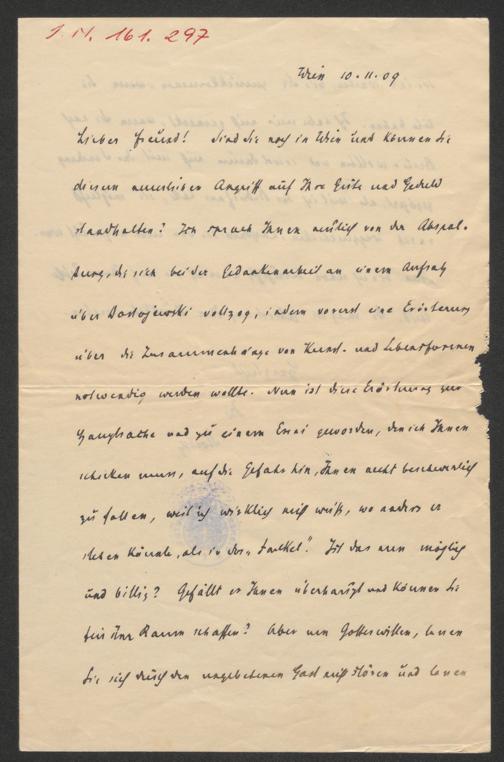 I. N. 161.297
Wien 10.11.09
Lieber Freund! Sind Sie noch in Wien und können Sie
diesem neuerlichen Angriff auf Ihre Güte und Geduld
standhalten? Ich sprach Ihnen neulich von der Abspal-
tung, die sich bei der Gedankenarbeit an einem Aufsatz
über Dostojewski vollzog, indem vorerst eine Erörterung
über die Zusammenhänge von Kunst- und Lebensformen
notwendig werden wollte. Nun ist diese Erörterung zur
Hauptsache und zu einem Essai geworden, den ich Ihnen
schicken muss, auf die Gefahr hin, Ihnen recht beschwerlich
zu fallen, weil ich wirklich nicht weiß, wo anders er
stehen könnte, als in der „Fackel“. Ist das nun möglich
und billig? Gefällt er Ihnen überhaupt und können Sie
für ihn Raum schaffen? Aber um Gotteswillen, lassen
Sie sich durch den ungebetenen Gast nicht stören und lassen